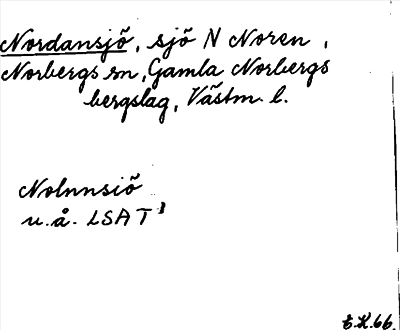 Nordansjö, sjö N Noren,
Norbergs sn, Gamla Norbergs
bergslag, Västm. l.
Nolnnsiö
u.å. LSA T³
E.K.66.